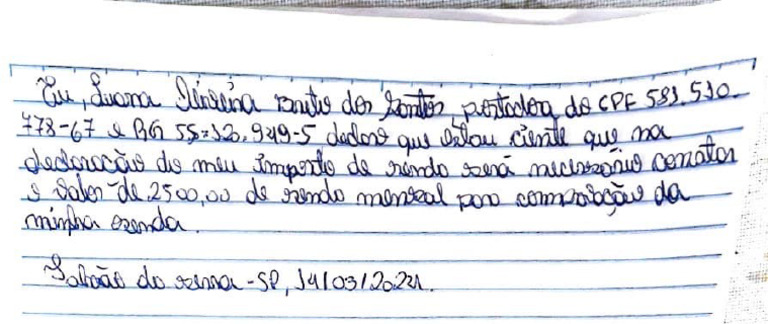 Eu, Luana Oliveira santos dos Santos, portadora do CPF 581.510.
778-67 e RG 55.120.949-5 declaro que estou ciente que na
declaração do meu imposto de renda será necessário constar
o valor de 2500,00 de renda mensal para comprovação da
minha renda.
do serra - SP, 14/03/2024.